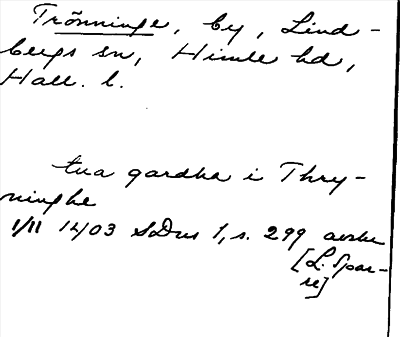 Trönninge, by, Lind-
bergs sn, Himle hd,
Hall. l.
tua gardha i Thry-
ninghe
1/11 1403 SDns 1, s. 299 avskr
[L. Spar-
re]